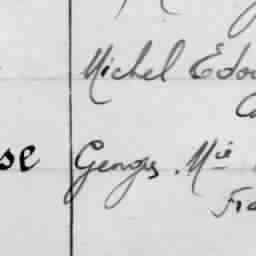 Michel Edou
se Georges. Mie
Fra